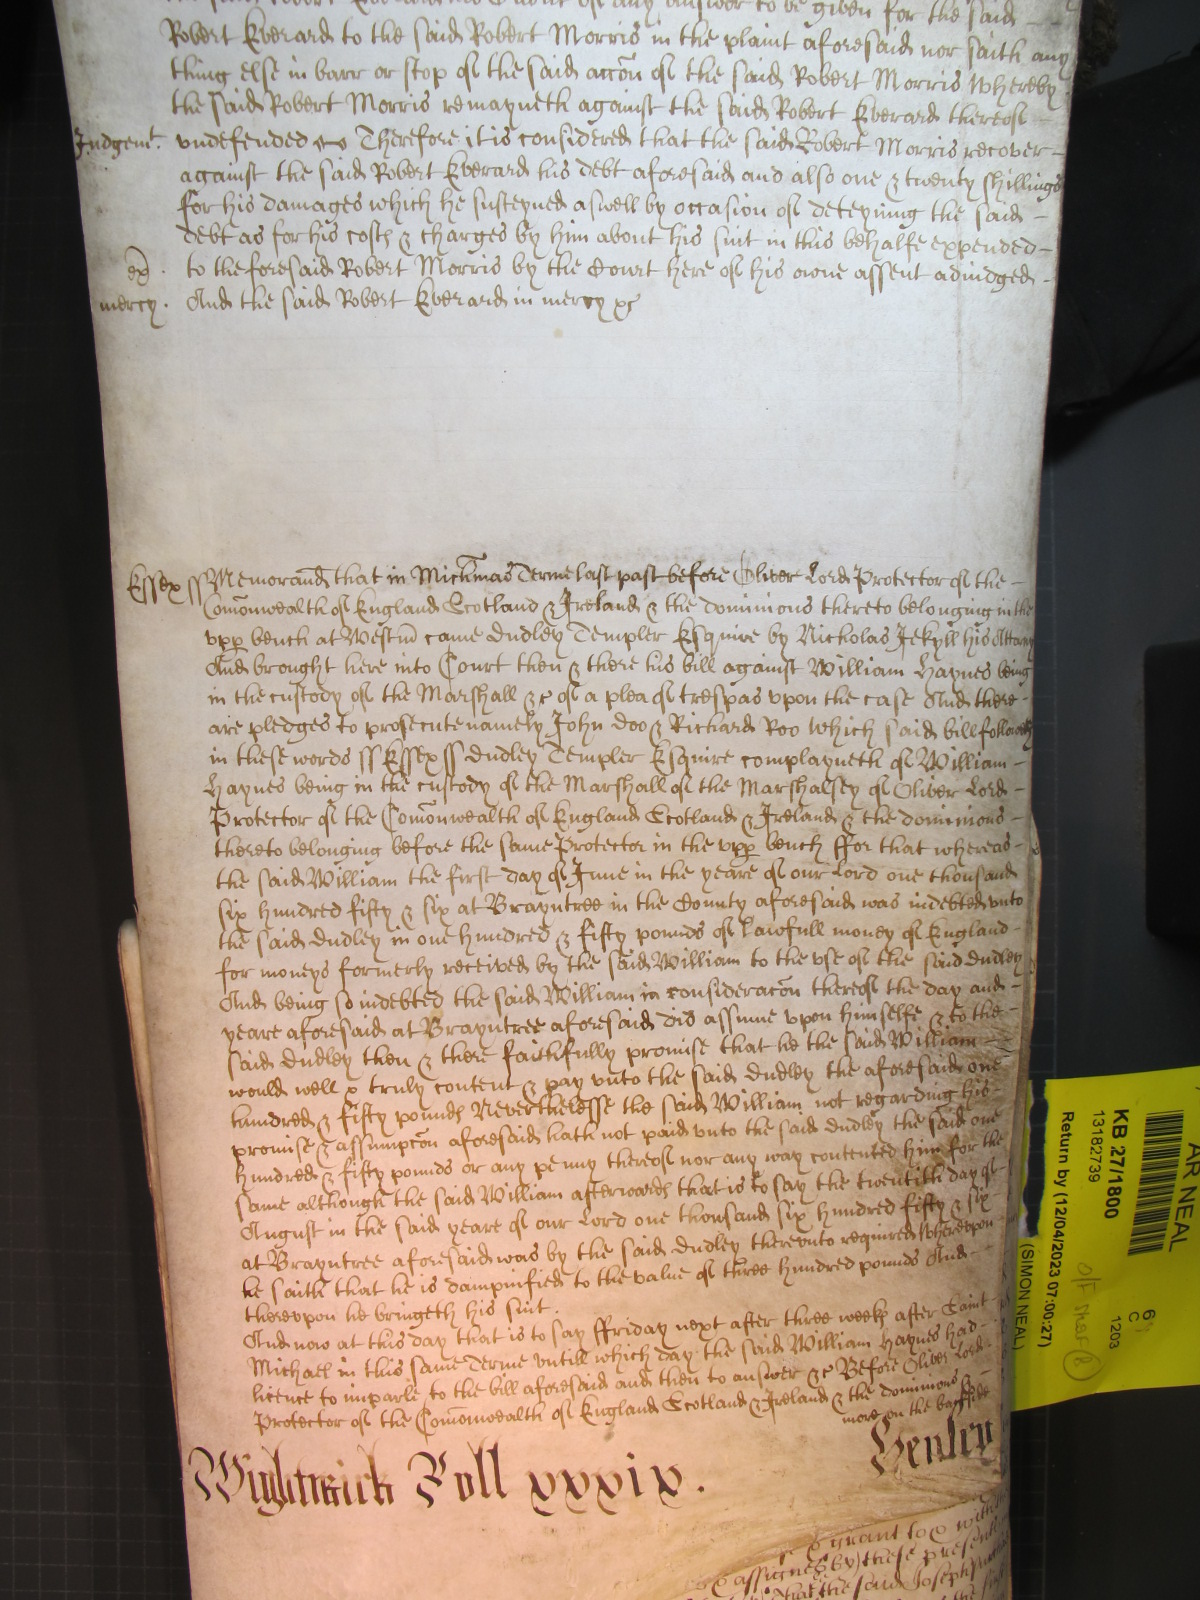 Robert Everard to the said Robert Morris in the plaint aforesaid nor saith any
thing else in barr or stop of the said accon of the said Robert Morris Whereby
the said Robert Morris remayneth against the said Robert Everard thereof
Judgemt. vndefended Therefore it is considered that the said Robert Morris recover
against the said Robert Everard his debt aforesaid and also one & twenty shillings
for his damages which he susteyned aswell by occasion of deteyning the said
debt as for his costs & charges by him about his suit in this behalfe expended
to the foresaid Robert Morris by the Court here of his owne assent adiudged
mercy. And the said Robert Everard in mercy &c
Essex ss Memorand that in Michmas Terme last past before Oliver Lord Protector of the
Comonwealth of England Scotland & Ireland & the dominions thereto belonging in the
vpp bench at Westm came Dudley Templer Esquire by Nicholas Jekyll his Attorny
And brought here into Court then & there his bill against William Haynes being
in the custody of the Marshall &c of a plea of trespas vpon the case And there
are pledges to prosecute namely John Doo & Richard Roo Which said bill followeth
in these words ss Essex ss Dudley Templer Esquire complayneth of William
Haynes being in the custody of the Marshall of the Marshalsey of Oliver Lord
Protector of the Comonwealth of England Scotland & Ireland & the dominions
thereto belonging before the same Protector in the vpp bench ffor that whereas
the said William the first day of June in the yeare of our Lord one thousand
six hundred fifty & six at Brayntree in the County aforesaid was indebted vnto
the said Dudley in one hundred & fifty pounds of lawfull money of England
for moneys formerly received by the said William to the vse of the said Dudley
And being so indebted the said William in consideracon thereof the day and
yeare aforesaid at Brayntree aforesaid did assume vpon himselfe & to the
said Dudley then & there faithfully promise that he the said William
would well & truly content & pay vnto the said Dudley the aforesaid one
hundred & fifty pounds Neverthelesse the said William not regarding his
promise & assumpcon aforesaid hath not paid vnto the said Dudley the said one
hundred & fifty pounds or any penny thereof nor any way contented him for the
same although the said William afterwards that is to say the twentith day of
August in the said yeare of our Lord one thousand six hundred fifty & six
at Brayntree aforesaid was by the said Dudley therevnto required Wherevpon
he saith that he is dampnified to the value of three hundred pounds And
therevpon he bringeth his suit.
And now at this day that is to say ffriday next after three weeks after Saint
Michael in this same Terme vntill which day the said William Haynes had
licence to imparle to the bill aforesaid and then to answer &c Before Oliver Lord
Protector of the Comonwealth of England Scotland & Ireland & the dominions &
more on the backside
Wightwick Roll xxxix. Henley
grant to
assignes by these presents
that the said Joseph
AR NEAL
KB 27/1800
13182739
Return by (12/04/2023 07:00:27)
(SIMON NEAL)
C
1203